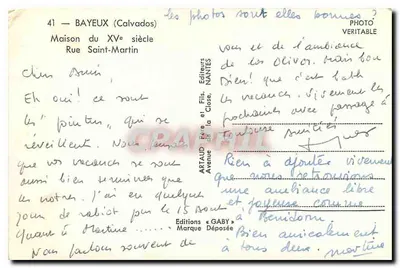 les photos sont elles bonnes ?
41 - BAYEUX (Calvados)
Maison du XVe siècle
Rue Saint-Martin
PHOTO
VERITABLE
Chers Amis,
Eh oui ! ce sont
les "pointes", qui se
réveillent. Nous
que vos vacances se sont
aussi bien terminées que
les notres. J'ai eu quelques
jours de rabiot pour le 15 Aout
Quant à Martine
Nous parlons souvent de
vous et de l'ambiance
de los Olivos. Mais bon
Bien ! que c'est
les vacances. Vivement les
prochaines avec passage à
Toulouse Amitiés
Bien à ajouter vivement
que nous retrouvions
une ambiance libre
et joyeuse comme
à Benidorm.
Bien amicalement
à tous deux. Martine
ARTAUD Père et Fils, Editeurs
Avenue de la Close, NANTES
Editions "GABY"
Marque Déposée